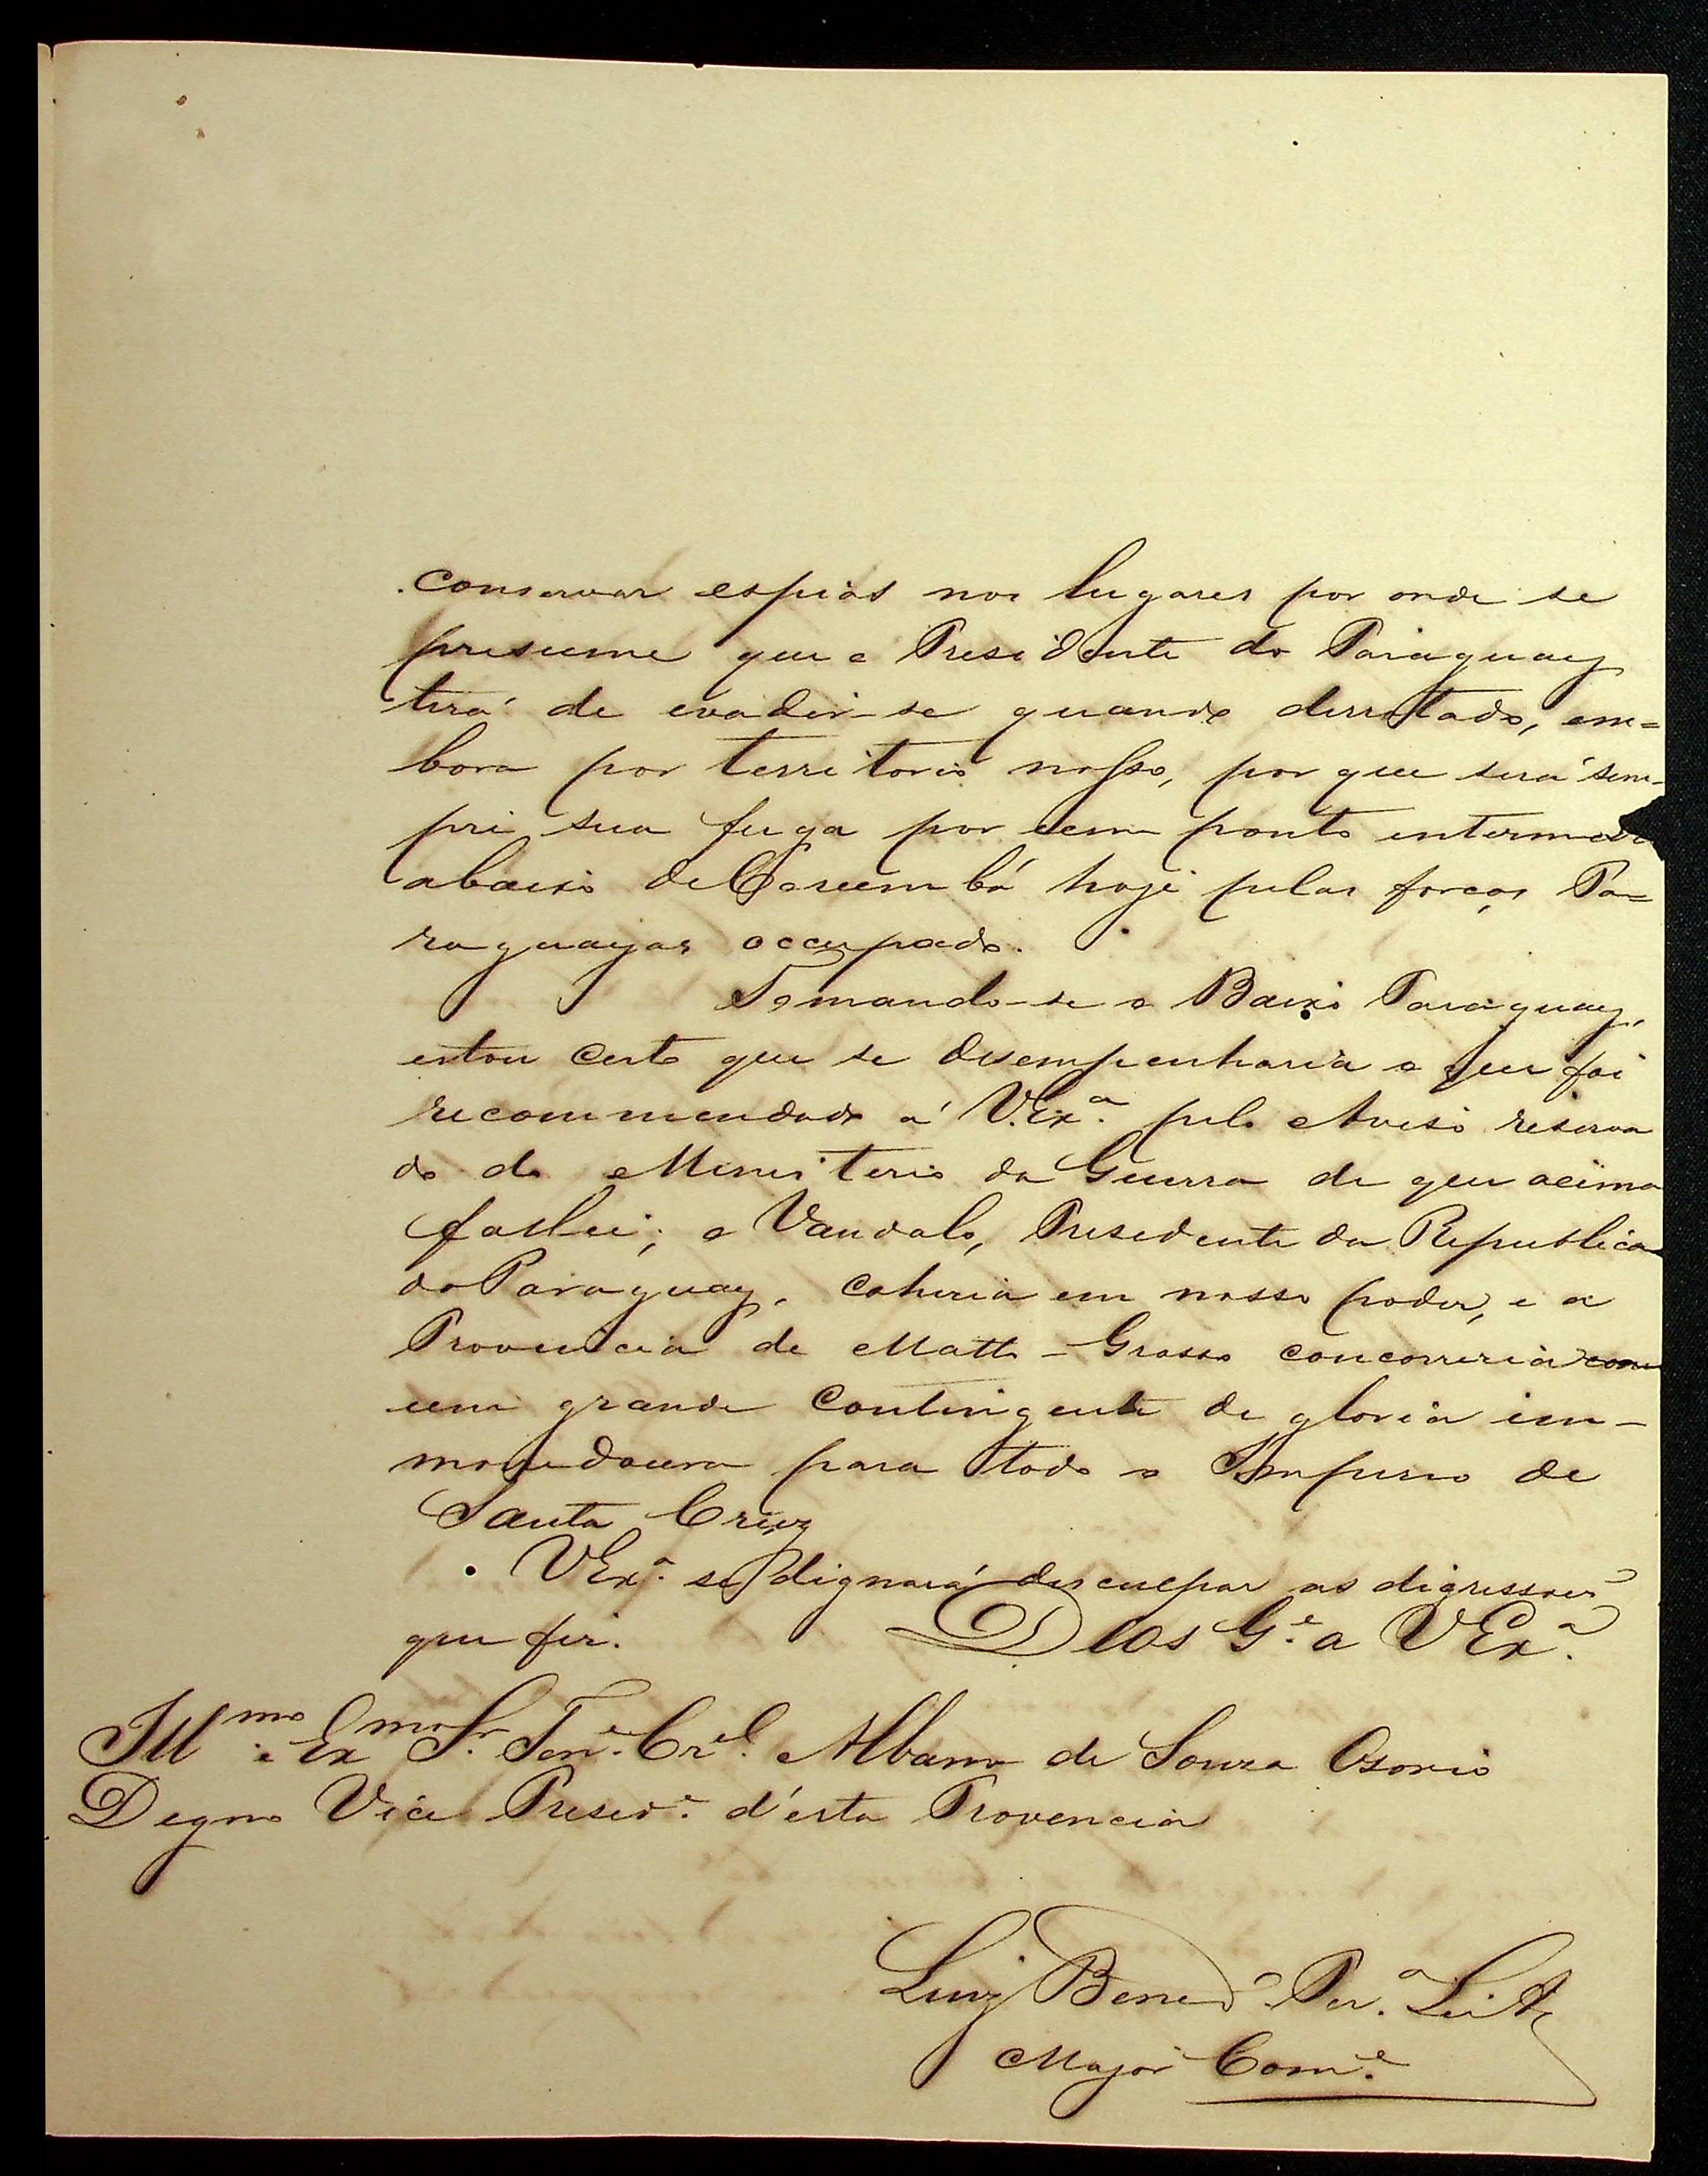 conservar espias nos lugares por onde se
presume que o Presidente do Paraguay
terá de evadir-se quando derrotado, em=
bora por territorio nosso, por que será sem-
pre sua fuga por um ponto intermedi
abaixo de Corumbá hoje pelas forças Pa=
raguayas occupado.
Tomando-se o Baixo Paraguay,
estou certo que se desempenharia o que foi
recommendado á V.Exª. pelo Aviso reserva
do do Ministerio da Guerra de que acima
fallei; o Vandalo, Presidente da Republica
do Paraguay, cahiria em nosso poder, e a
Provincia de Matto-Grosso concorreria com
um grande contingente de gloria im-
morredoura para todo o Imperio de
Santa Cruz
VExª. se dignará desculpar as digressões
que fiz. Deos G.e a VExª.
Illmo e Exmo Sr. Ten.e Crel. Albano de Souza Osorio
Digno Vice Presid.e d'esta Provincia
Luiz Bened.o Per.a Leite
Major Com.e